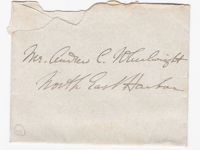 Mr. Andrew C. Wheelwright
North East Harbor